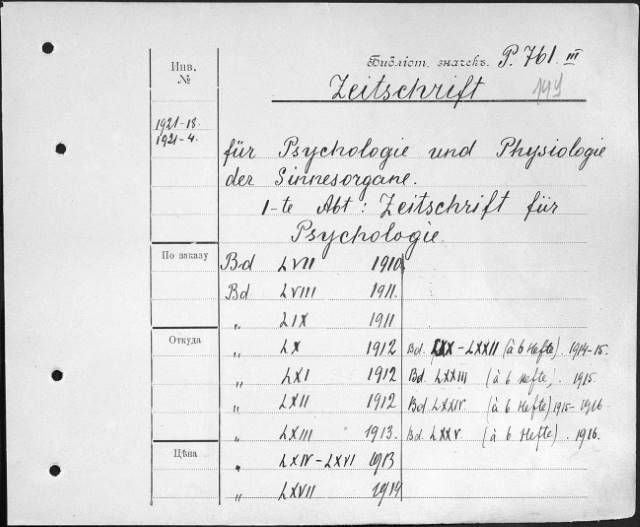 Библіот. значекъ. P. 761. III
Инв. №
Zeitschrift
1921-18.
1921-4.
für Psychologie und Physiologie
der Sinnesorgane.
1-te Abt: Zeitschrift für
Psychologie.
По заказу
Bd LVII 1910
Bd LVIII 1911.
„ LIX 1911
Откуда
„ LX 1912 Bd. LXX-LXXII (à 6 Hefte). 1914-15.
„ LXI 1912 Bd. LXXIII (à 6 Hefte). 1915.
„ LXII 1912 Bd. LXXIV. (à 6 Hefte) 1915-1916.
„ LXIII 1913. Bd. LXXV. (à 6 Hefte). 1916.
Цѣна
„ LXIV-LXVI 1913
„ LXVII 1914